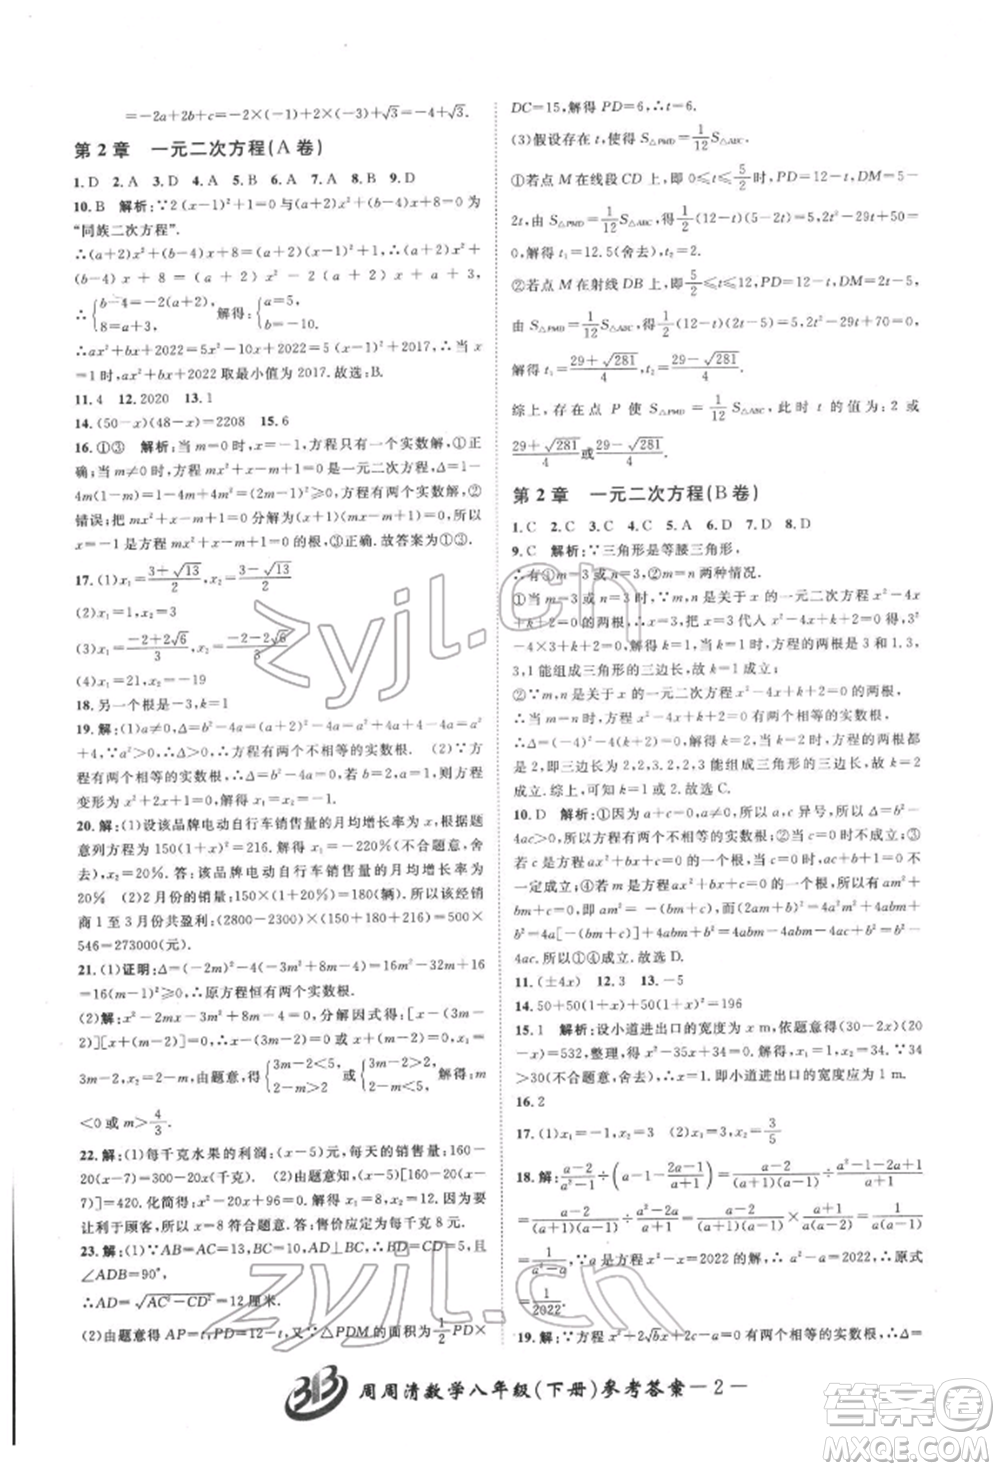 =-2a+2b+c=-2×(-1)+2×(-3)+√3=-4+√3.
第 2 章 一元二次方程(A 卷)
1. D 2. A 3. D 4. A 5. B 6. A 7. A 8. B 9. D
10. B 解析:∵2(x-1)²+1=0与(a+2)x²+(b-4)x+8=0为
“同族二次方程”.
∴(a+2)x²+(b-4)x+8=(a+2)(x-1)²+1,
∴(a+2)x²+(b-4)x+8=(a+2)x²-2(a+2)x+a+3,
∴{b-4=-2(a+2), 8=a+3, 解得:{a=5, b=-10.
∴ax²+bx+2022=5x²-10x+2022=5(x-1)²+2017,∴当 x
=1 时,ax²+bx+2022 取最小值为 2017.故选:B.
11. 4 12. 2020 13. 1
14. (50-x)(48-x)=2208 15. 6
16. ①③ 解析:当 m=0 时,x=-1,方程只有一个实数解,①正
确;当 m≠0 时,方程为一元二次方程,Δ=1-4m(1-m)=
4m²-4m+1=(2m-1)²≥0,方程有两个实数解,②
错误;把 mx²+x-m+1=0 分解为(x+1)(mx-m+1)=0,当 x
=-1 时,m-1-m+1=0,③正确.故答案为①③.
17. (1)x₁=(3+√13)/2,x₂=(3-√13)/2
(2)x₁=3,x₂=9
(3)x₁=(-2+2√6)/3,x₂=(-2-2√6)/3
(4)x₁=21,x₂=-19
18. 另一个根是-3,k=1
19. 解:(1)a≠0,Δ=b²-4a=(a+2)²-4a=a²+4a+4-4a=a²
+4,∵a²>0,∴Δ>0,∴方程有两个不相等的实数根. (2)∵方
程有两个相等的实数根,∴Δ=b²-4a=0,若b=2,a=1,则方程
变形为 x²+2x+1=0,解得 x₁=x₂=-1.
20. 解:(1)设该品牌电动自行车销售量的月均增长率为 x,根据题
意列方程为 150(1+x)²=216,解得 x₁=-220%(不合题意,舍
去),x₂=20%.答:该品牌电动自行车销售量的月均增长率为
20% (2)2 月份的销量:150×(1+20%)=180(辆).所以该经销
商 1 至 3 月份共盈利:(2800-2300)×(150+180+216)=500×
546=273000(元).
21. (1)证明:Δ=(-2m)²-4(-3m²+8m-4)=16m²-32m+16
=16(m-1)²≥0,∴原方程恒有两个实数根.
(2)解:x²-2mx-3m²+8m-4=0,分解因式得:[x-(3m-
2)][x+(m-2)]=0,∴x-(3m-2)=0或x+(m-2)=0,∴x=
3m-2,x=2-m,由题意,得{3m-2<5, 2-m>5 或{3m-2>5, 2-m<5, 解得:m
<0 或 m>4/3.
22. 解:(1)每千克水果的利润:(x-5)元,每天的销售量:160-
20(x-7)=300-20x(千克). (2)由题意,得(x-5)[160-20(x-
7)]=420.化简得:x²-20x+96=0,解得 x₁=8,x₂=12.因为要
让利于顾客,所以 x=8 符合题意.答:售价应为每千克 8 元.
23. 解:(1)∵AB=AC=13,AD⊥BC,∴BD=CD=5,且
∠ADB=90°,
∴AD=√(AC²-CD²)=12厘米.
(2)由题意 AP=t,PD=12-t,∵△PDM 的面积为 1/2 PD×
DC=15,解得 PD=6,∴t=6.
(3)假设存在 t,使得 S△PMD=1/12 S△ABC.
①若点 M 在线段 CD 上,即 0≤t≤5/2 时,PD=12-t,DM=5-
2t,由 S△PMD=1/12 S△ABC,得 1/2(12-t)(5-2t)=5,2t²-29t+50=
0,解得 t₁=12.5(舍去),t₂=2.
②若点 M 在射线 DB 上,即 5/2≤t≤12 时,PD=12-t,DM=2t-5,
由 S△PMD=1/12 S△ABC,得 1/2(12-t)(2t-5)=5,2t²-29t+70=0.
解得 t₁=(29+√281)/4,t₂=(29-√281)/4.
综上,存在点 P 使 S△PMD=1/12 S△ABC,此时 t 的值为:2 或
(29+√281)/4或(29-√281)/4.
第 2 章 一元二次方程(B 卷)
1. C 2. C 3. C 4. C 5. A 6. D 7. D 8. D
9. C 解析:∵三角形是等腰三角形,
∴有①m=3或n=3,②m=n 两种情况.
①当 m=3或n=3时,∵m,n是关于 x 的一元二次方程 x²-4x
+k+2=0的两根,∴x=3,把 x=3 代入 x²-4x+k+2=0得,9
-4×3+k+2=0,解得:k=1,当 k=1 时,方程的两根是 3和1,3,
3,1 能组成三角形的三边长,故 k=1 成立;
②∵m,n 是关于 x 的一元二次方程 x²-4x+k+2=0 的两根,
∴Δ=(-4)²-4(k+2)=0,解得:k=2,当 k=2 时,方程的两根
是 2,三边长为 2,2,3,2,2,3 能组成三角形的三边长,故 k=2
成立.综上,可知k=1或2,故选:C.
10. D 解析:①因为 a+c=0,a≠0,所以 a,c 异号,所以Δ=b²-
4ac>0,所以方程有两个不相等的实数根;②当 c=0 时不成立;③
若 c 是方程 ax²+bx+c=0的一个根,当 c=0 时,ac+b+1=0不
一定成立;④若 m 是方程 ax²+bx+c=0 的根,所以有 am²+bm+
c=0,即 am²=-(bm+c),而(2am+b)²=4a²m²+4abm+
b²=4a[-(bm+c)]+4abm+b²=-4abm-4ac+4abm+b²=b²-
4ac.所以①④成立.故选 D.
11. (±4x) 12. 3 13. -5
14. 50+50(1+x)+50(1+x)²=196
15. 1 解析:设小道进出口的宽度为 x m,依题意得(30-2x)(20
-x)=532,整理,得 x²-35x+34=0.解得,x₁=1,x₂=34.∵34
>30(不合题意,舍去),∴x=1.即小道进出口的宽度应为 1 m.
16. 2
17. (1)x₁=-1,x₂=3 (2)x₁=3,x₂=3/5
18. 解:(a-2)/(a²-1)÷(a-1-(2a-1)/(a+1))=(a-2)/((a+1)(a-1))÷(a²-1-2a+1)/(a+1)
=(a-2)/((a+1)(a-1))÷(a²-2a)/(a+1)=(a-2)/((a+1)(a-1))·(a+1)/(a(a-2))=1/(a(a-1))
=1/(a²-a).∵a是方程x²-x=2022的解,∴a²-a=2022,∴原式
=1/2022.
19. 解:∵方程 x²+2√b x+2c-a=0有两个相等的实数根,∴Δ=
周周清数学八年级(下册)参考答案-2-
zyjl.cn
zyjl.cn
答案圈
MXQE.COM